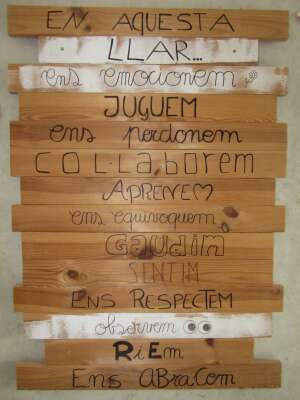 EN AQUESTA
LLAR...
ens emocionem
JUGUEM
ens perdonem
COL·Laborem
APRENEM
ens equivoquem
GAUDIM
SENTIM
ENS RESPECTEM
observem
RiEm
Ens ABraÇom